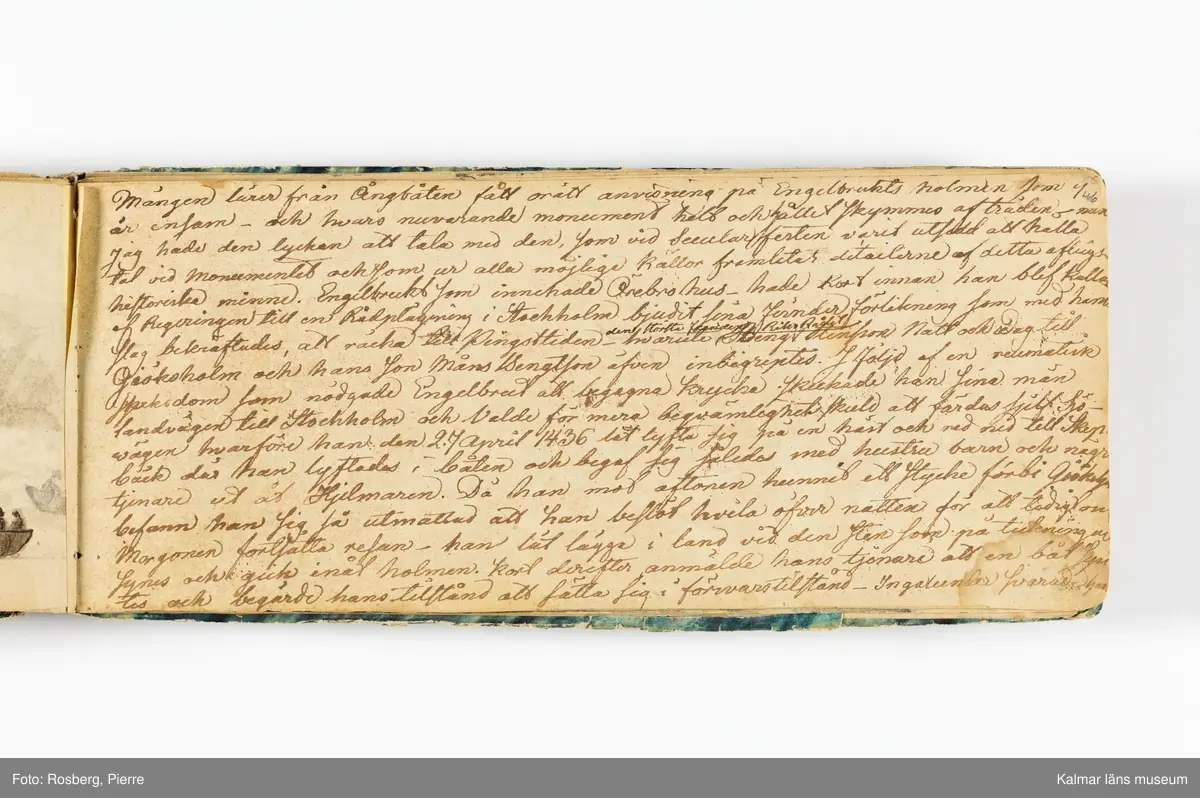 Mången lärer från Ångbåten fått orätt anvisning på Engelbrekts holmen som
är ensam – och hvars nuvarande monument helt och hållet skymmes af träden – men
Jag hade den lyckan att tala med den, som vid Secularfesten varit utsedd att hålla
tal vid monumentet och som ur alla möjlige källor framletat detailerne af detta
historiska minne. Engelbrekt som innehade Örebro hus – hade kort innan han blef kallad
af Regeringen till en Rådplägning i Stockholm bjudit sina fiender förlikning som med hand
slag bekräftades, att räcka till Pingsttiden – hvarute Bengt Stensson Natt och Dag till
den största fienden Riksrådet
Gjöksholm och hans son Måns Bengtson äfven inbegreptes. I följd af en reumatisk
sjukdom som nödgade Engelbrect att begagna krycka skickade han sina män
landvägen till Stockholm och valde för mera beqvämlighet skuld att färdas sjelf Sjö-
vägen hvarföre han den 27 April 1436 lät lyfta sig på en häst och red ned till
bäck där han lyftades i båten och begaf sig således med hustru barn och några
tjenare ut åt Hjelmaren. Då han mot aftonen hunnit ett stycke förbi
befann han sig så utmattad att han beslöt hvila öfver natten för att tidigt om
Morgonen fortsätta resan – han lät lägga i land vid den Sten som på tekningen
synes och gick inåt holmen. kort derefter anmälde hans tjenare att en båt
tes och begärde hans tillstånd att sätta sig i försvarstillstånd – Ingalunda svarade
Foto: Rosberg, Pierre
Kalmar läns museum